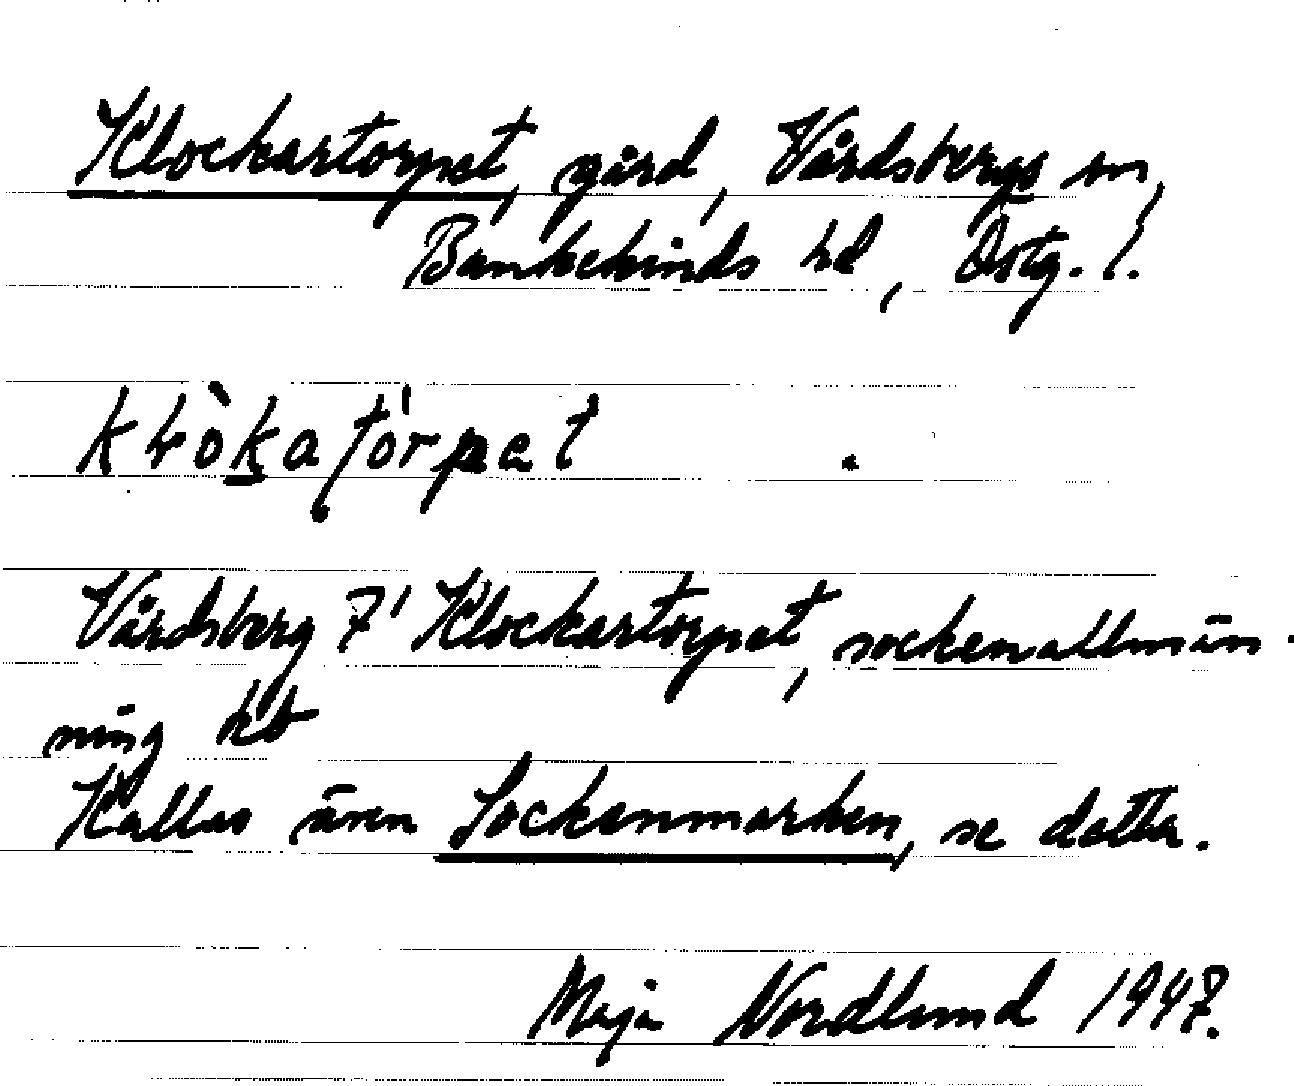 Klockartorpet, gård, Vårdsbergs sn,
Bankekinds hd, Östg. l.
Vårdsberg 7¹ Klockartorpet, sockenallmän-
ning kb
Kallas även Sockenmarken, se detta.
Maja Nordlund 1947.